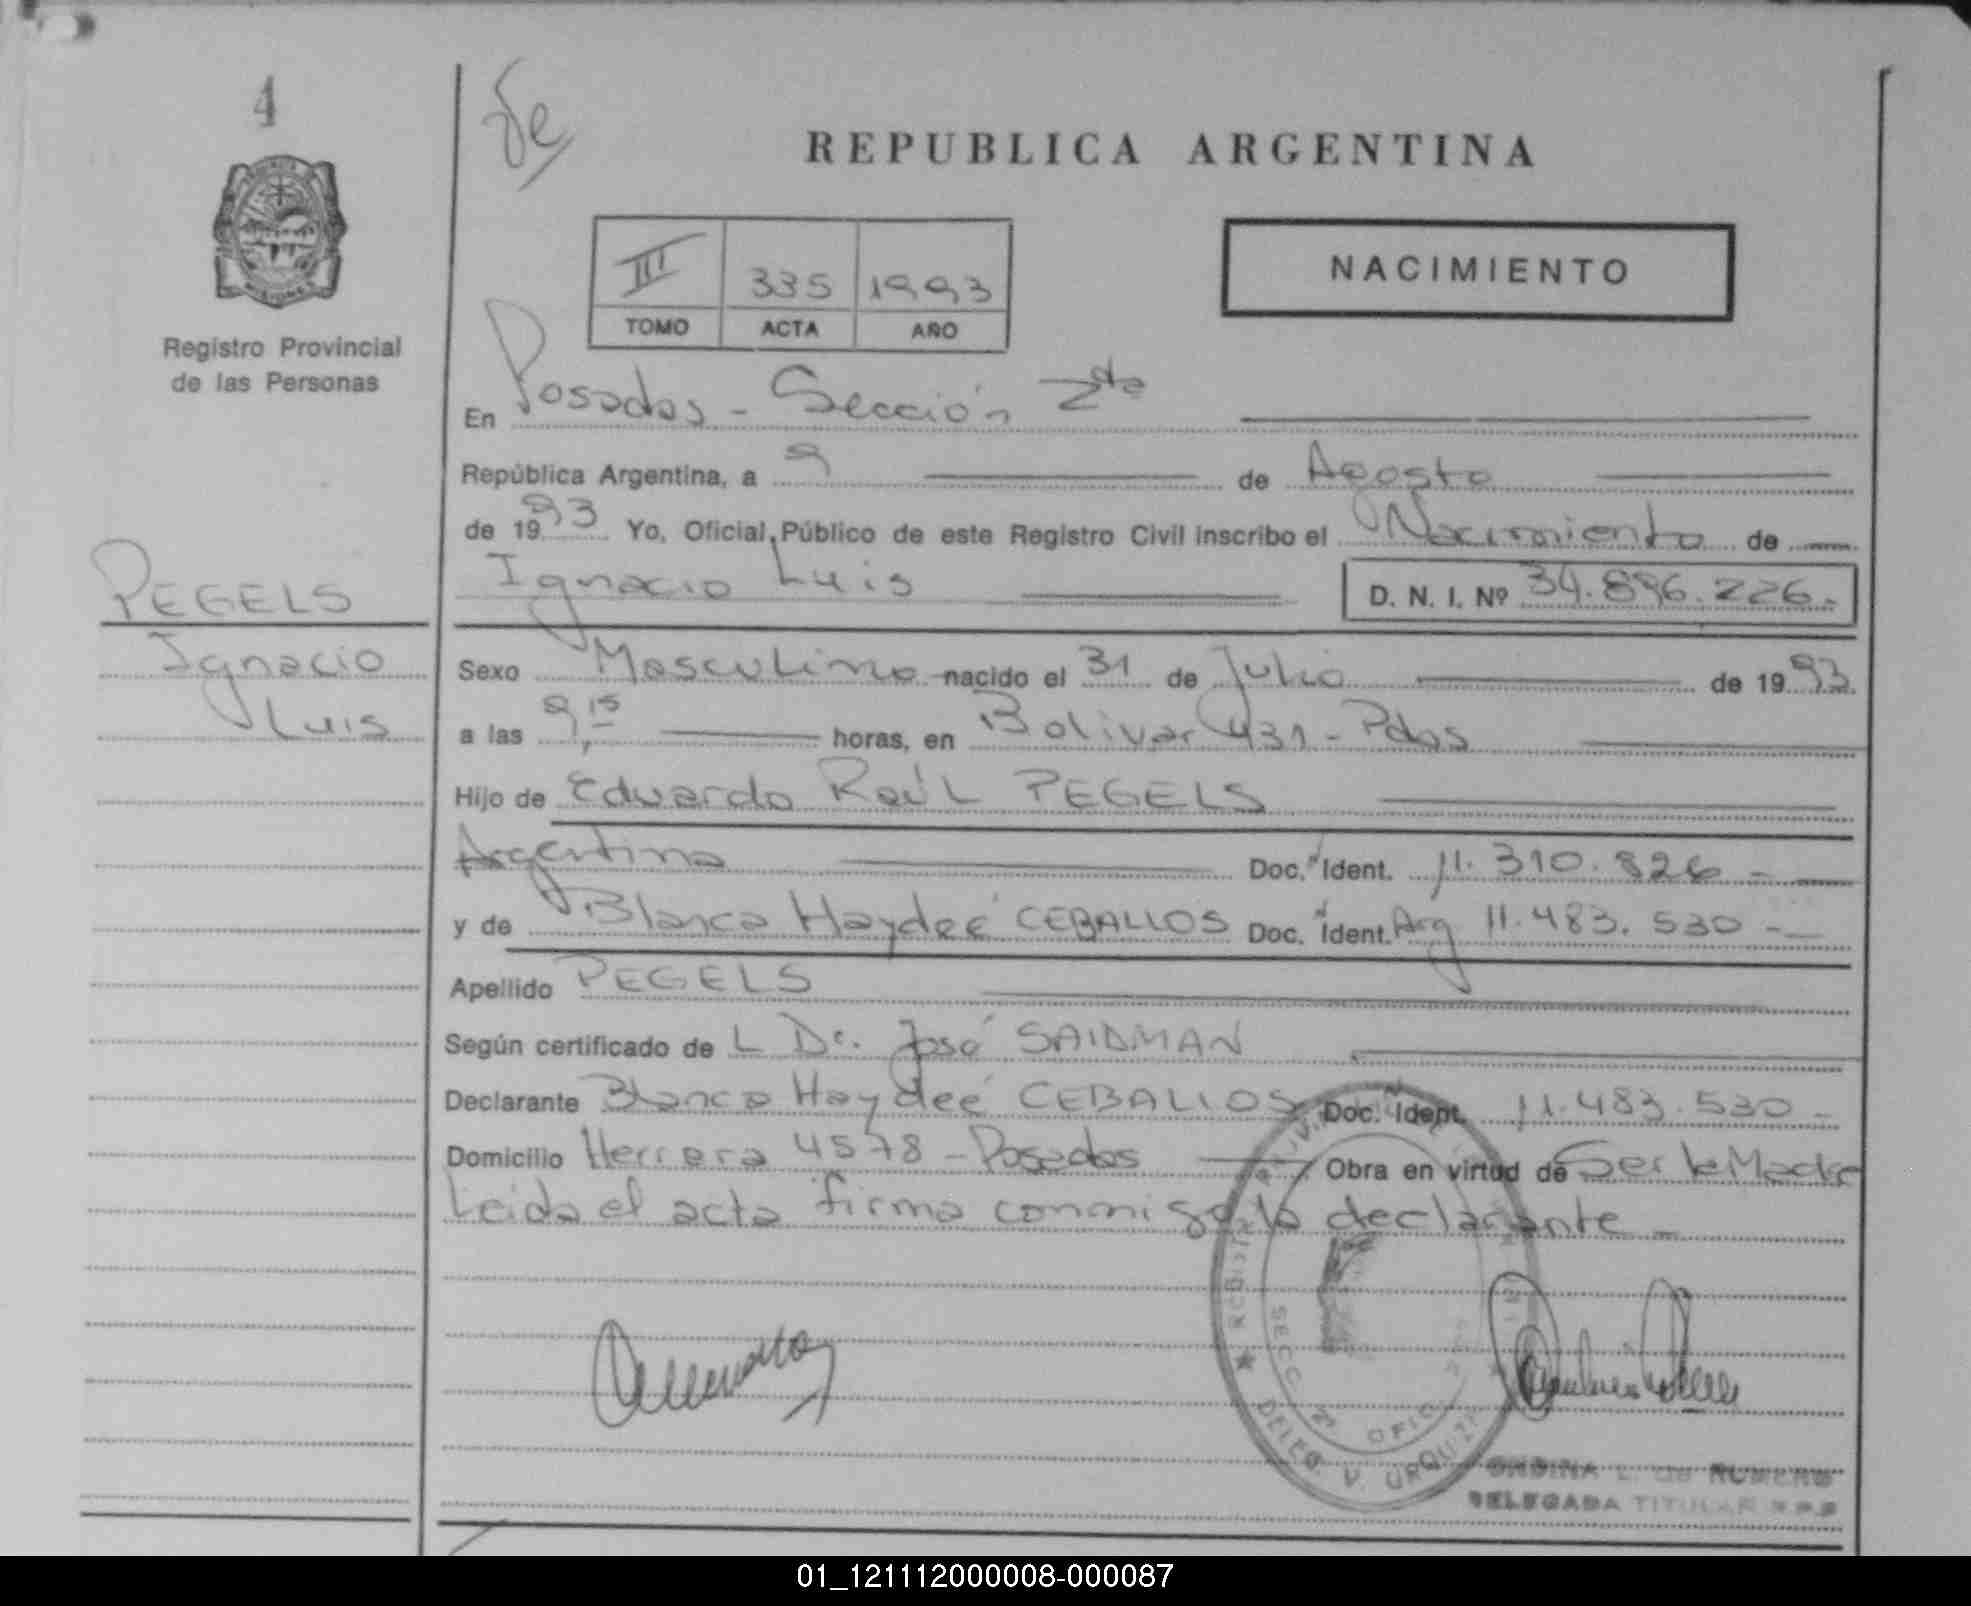 4
REPUBLICA ARGENTINA
MISIONES
Registro Provincial
de las Personas
III 335 1993
TOMO ACTA AÑO
NACIMIENTO
En Posadas - Sección 2da
República Argentina, a 9 de Agosto
de 1993 Yo, Oficial Público de este Registro Civil inscribo el Nacimiento de
Ignacio Luis D. N. I. Nº 34.896.226.
PEGELS
Ignacio
Luis
Sexo Masculino nacido el 31 de Julio de 1993
a las 9,15 horas, en Bolivar 431 - Pdas
Hijo de Eduardo Raúl PEGELS
Argentino Doc. Ident. 11.310.826 -
y de Blanca Haydeé CEBALLOS Doc. Ident. Arg 11.483.530 -
Apellido PEGELS
Según certificado de L Dr. José SAIDMAN
Declarante Blanca Haydeé CEBALLOS Doc. Ident. 11.483.530 -
Domicilio Herrera 4578 - Posadas Obra en virtud de Ser la Madre
Leida el acta firma conmigo la declarante -
DELEG. V. URQUIZA
SECC. 2ª OFIC.
DELEGADA TITULAR
01_121112000008-000087